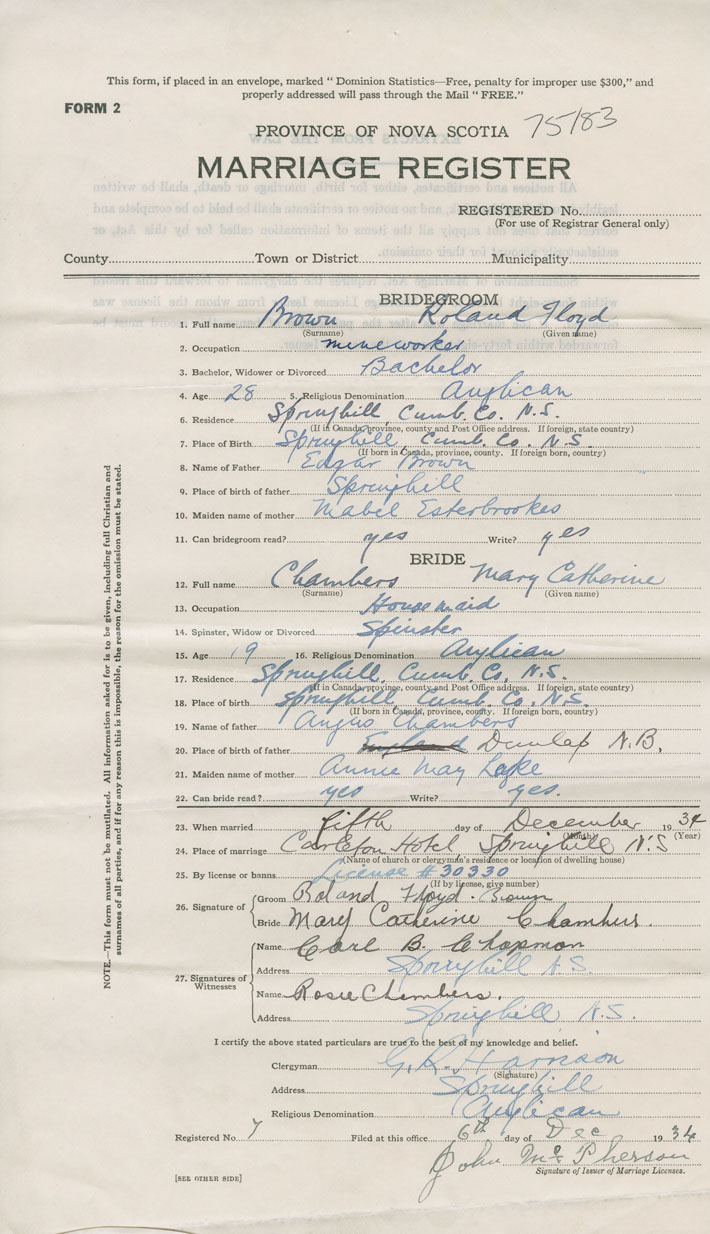 This form, if placed in an envelope, marked " Dominion Statistics—Free, penalty for improper use $300," and
properly addressed will pass through the Mail " FREE."
FORM 2
PROVINCE OF NOVA SCOTIA 75183
MARRIAGE REGISTER
REGISTERED No.
(For use of Registrar General only)
County Town or District Municipality
BRIDEGROOM
1. Full name Brown Roland Floyd
(Surname) (Given name)
2. Occupation mineworker
3. Bachelor, Widower or Divorced Bachelor
4. Age 28 5. Religious Denomination Anglican
6. Residence Springhill, Cumb. Co. N.S.
(If in Canada, province, county and Post Office address. If foreign, state country)
7. Place of Birth Springhill, Cumb. Co. N.S.
(If born in Canada, province, county. If foreign born, country)
8. Name of Father Edgar Brown
9. Place of birth of father Springhill
10. Maiden name of mother Mabel Esterbrookes
11. Can bridegroom read? yes Write? yes
BRIDE
12. Full name Chambers Mary Catherine
(Surname) (Given name)
13. Occupation Housemaid
14. Spinster, Widow or Divorced Spinster
15. Age 19 16. Religious Denomination Anglican
17. Residence Springhill, Cumb. Co, N.S.
(If in Canada, province, county and Post Office address. If foreign, state country)
18. Place of birth Springhill Cumb. Co. N.S.
(If born in Canada, province, county. If foreign born, country)
19. Name of father Angus Chambers
20. Place of birth of father England Dunlap N.B.
21. Maiden name of mother Annie May Lake
22. Can bride read? yes Write? yes.
23. When married fifth day of December 1934
(Month) (Year)
24. Place of marriage Carleton Hotel Springhill N.S
(Name of church or clergyman's residence or location of dwelling house)
25. By license or banns License #30330
(If by license, give number)
26. Signature of
Groom Roland Floyd Brown
Bride Mary Catherine Chambers.
27. Signatures of Witnesses
Name Carl B. Chapman
Address Springhill N.S.
Name Rosie Chambers.
Address Springhill N.S.
I certify the above stated particulars are true to the best of my knowledge and belief.
Clergyman G. R. Harrison
(Signature)
Address Springhill
Religious Denomination Anglican
Registered No. 7 Filed at this office 6th day of Dec 1934
John McPherson
Signature of Issuer of Marriage Licenses.
[SEE OTHER SIDE]
NOTE.—This form must not be mutilated. All information asked for is to be given, including full Christian and
surnames of all parties, and if for any reason this is impossible, the reason for the omission must be stated.